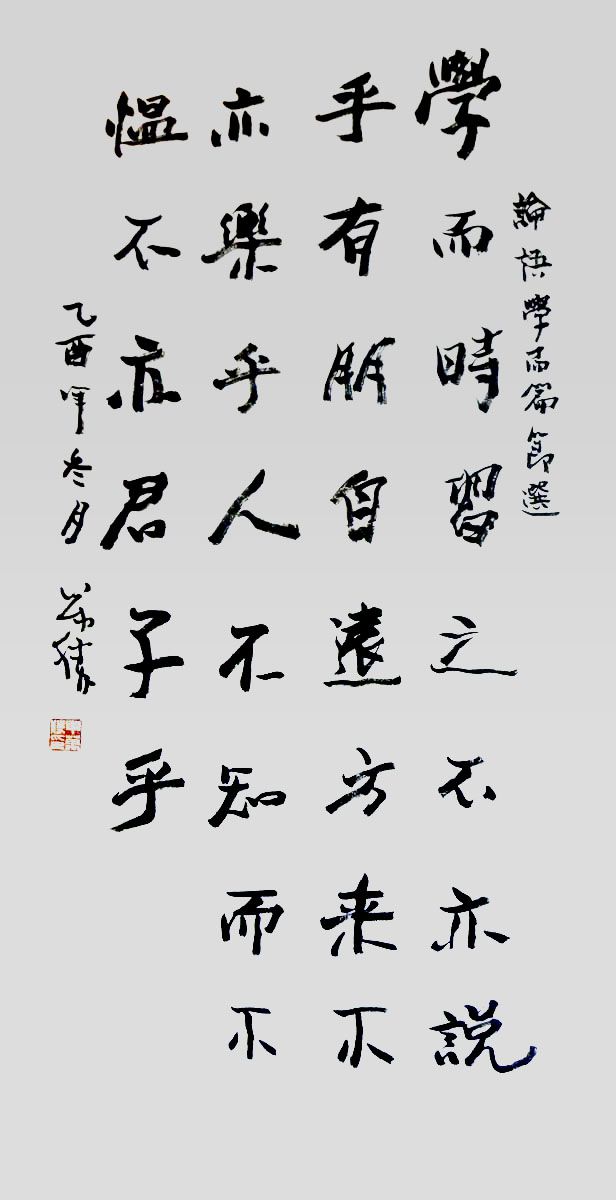 論語學而篇節選
學而時習之不亦説
乎有朋自遠方来不
亦樂乎人不知而不
愠不亦君子乎
乙酉年冬月